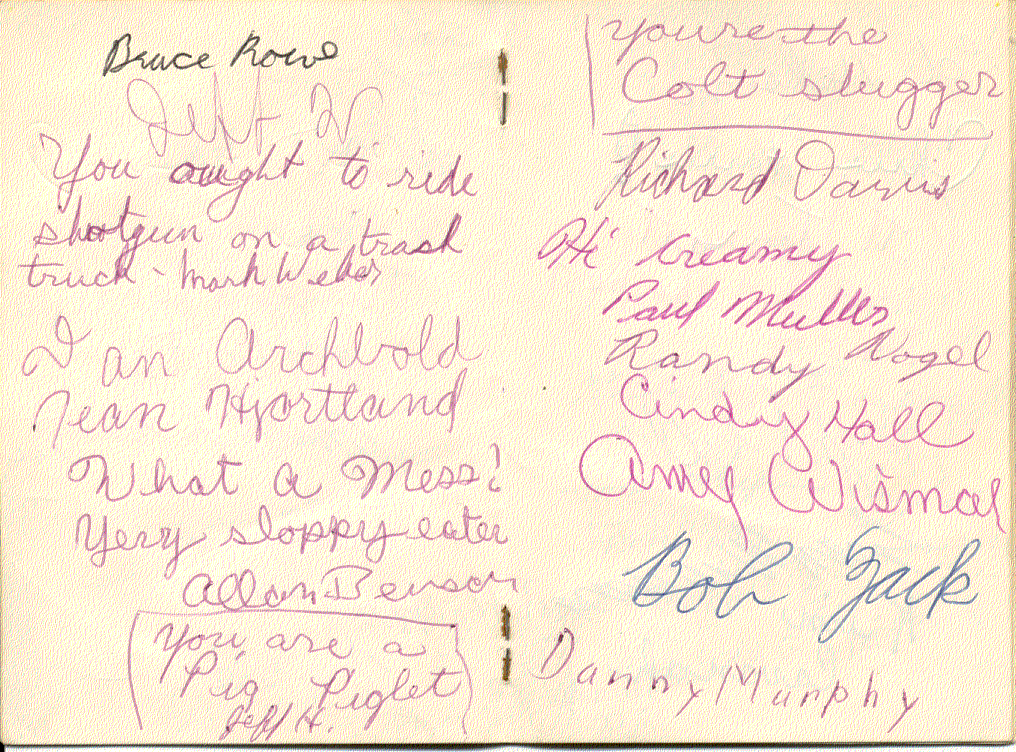 Bruce Rowe
Jeff W
You ought to ride
shotgun on a trash
truck - Mark Weber
Ian Archbold
Jean Hjortland
What a Mess!
Very sloppy eater
Allan Benson
You are a
Pig Piglet
Jeff H.
You're the
Colt slugger
Richard Davis
Hi Creamy
Paul Muller
Randy Vogel
Cindy Hall
Amy Wismar
Bob Zack
Danny Murphy